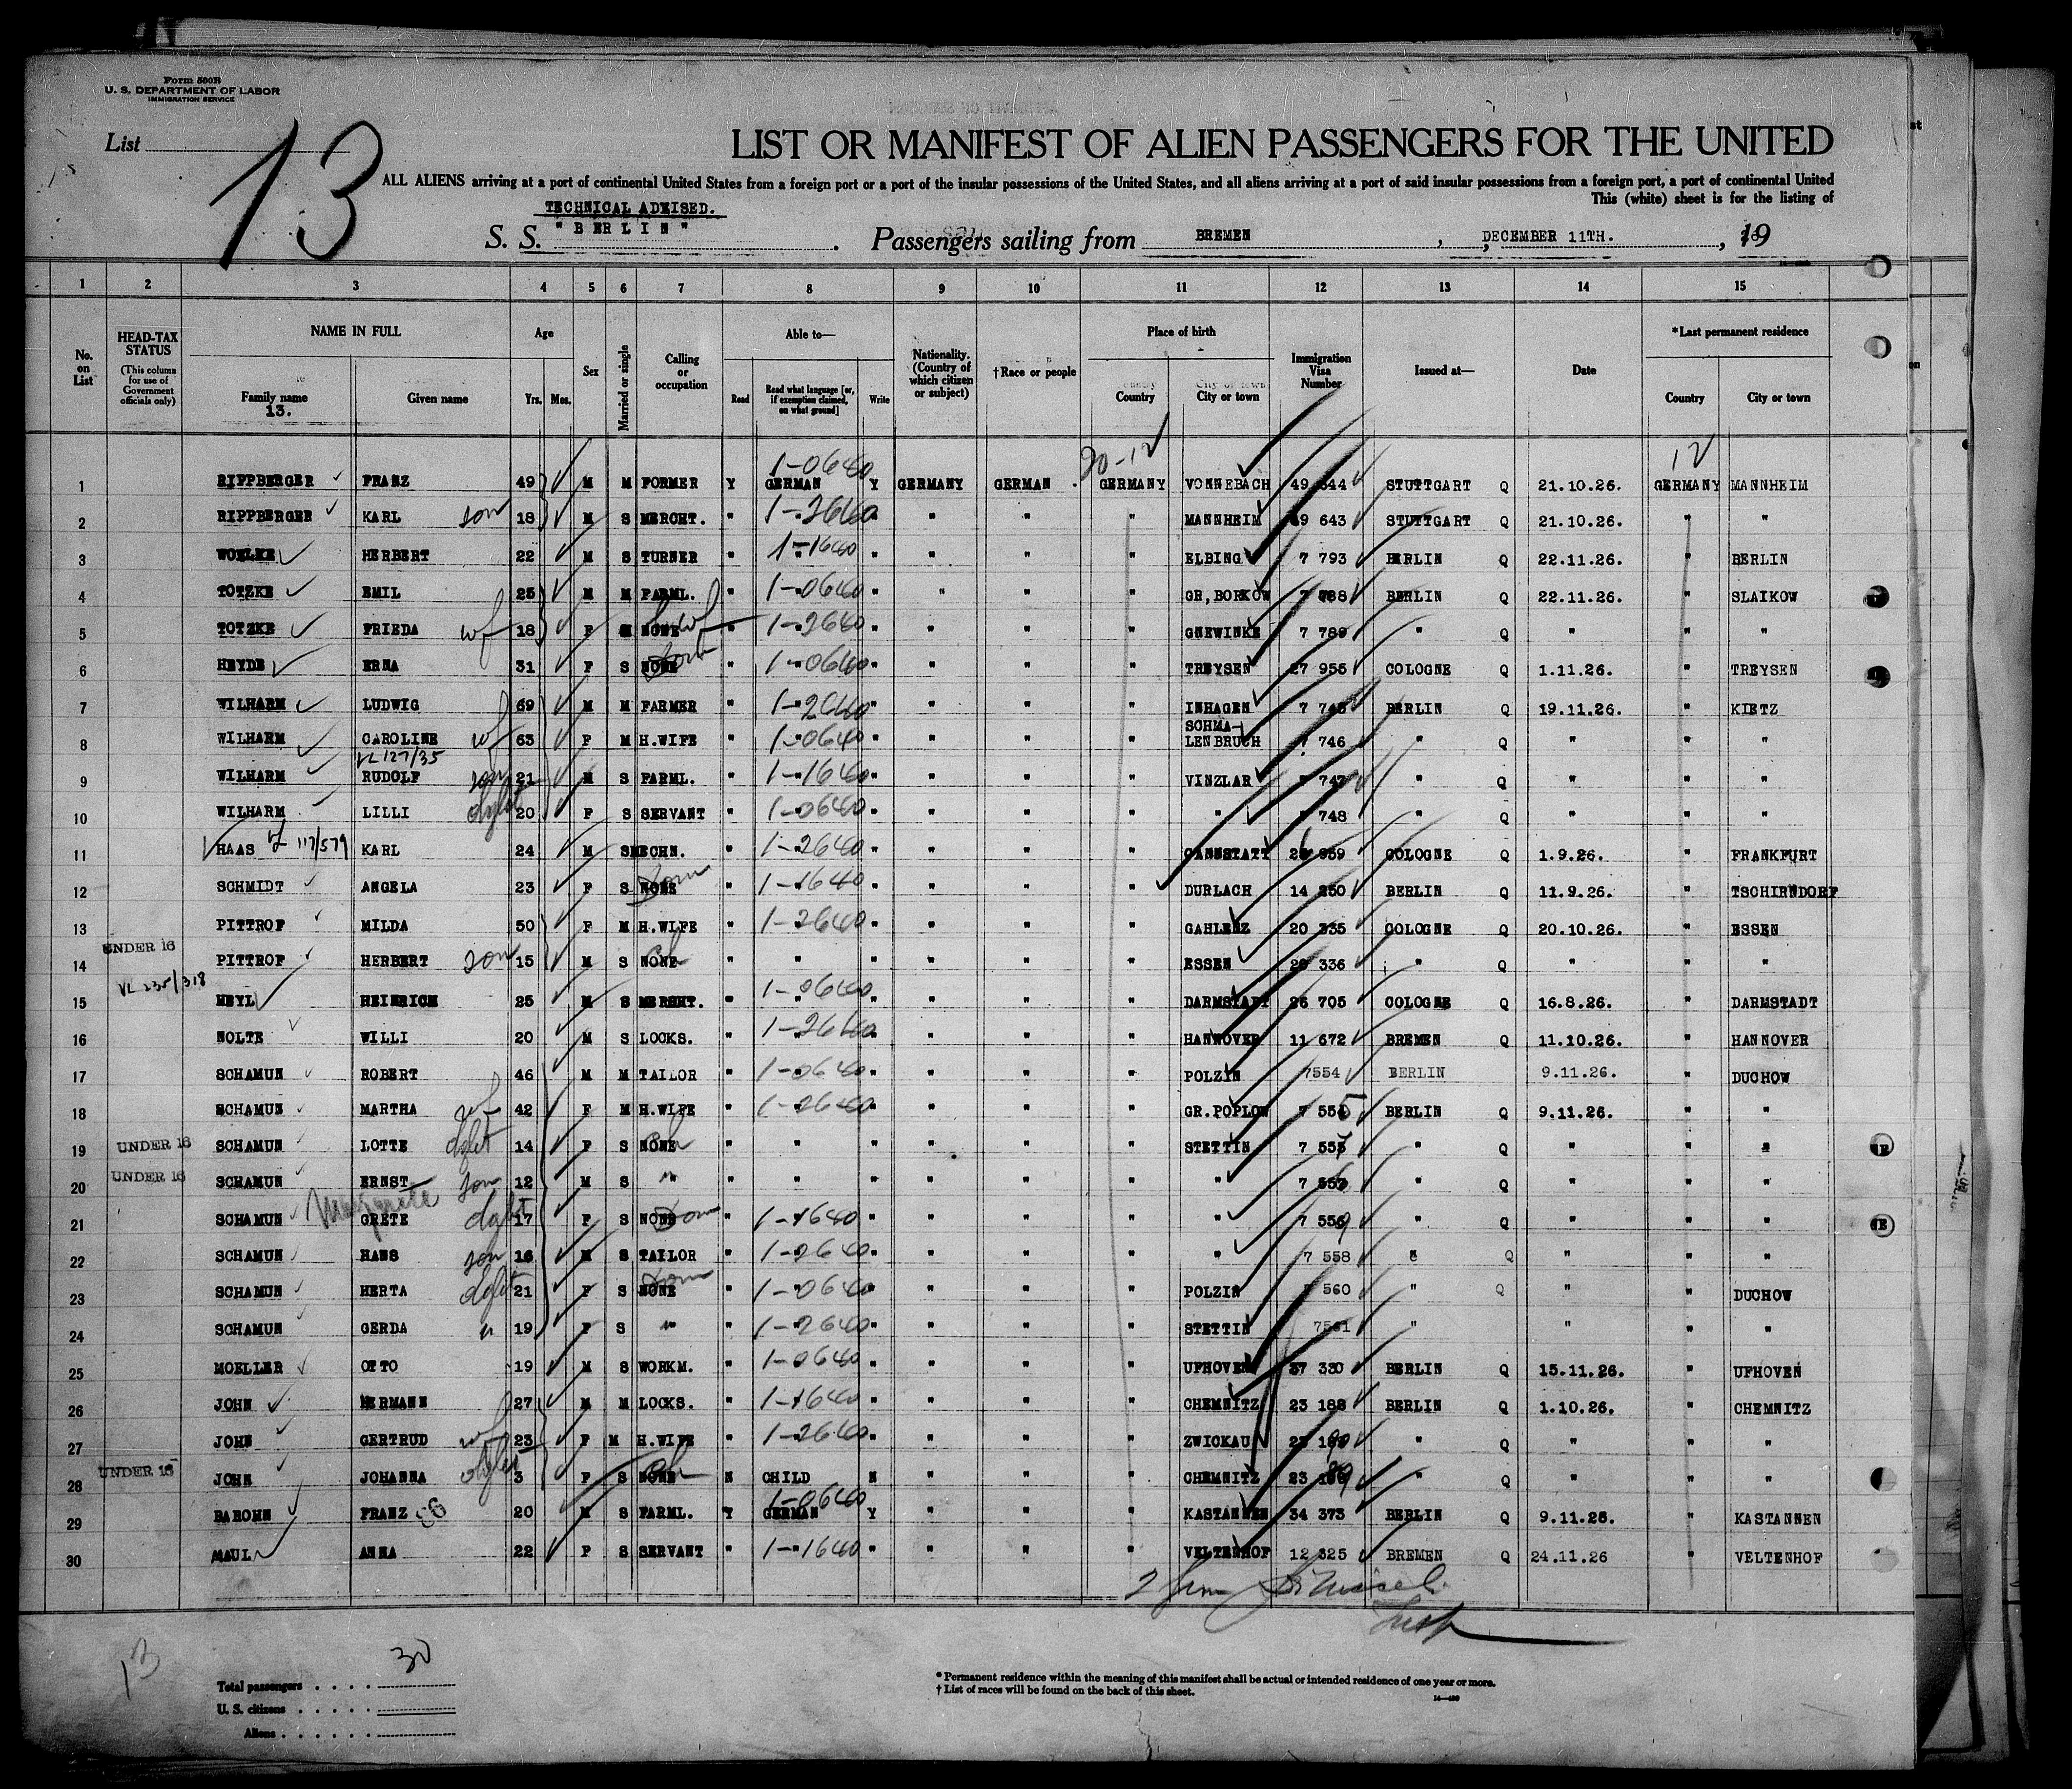 Form 500B
U. S. DEPARTMENT OF LABOR
IMMIGRATION SERVICE
List 13
LIST OR MANIFEST OF ALIEN PASSENGERS FOR THE UNITED
ALL ALIENS arriving at a port of continental United States from a foreign port or a port of the insular possessions of the United States, and all aliens arriving at a port of said insular possessions from a foreign port, a port of continental United
This (white) sheet is for the listing of
TECHNICAL ADVISED.
S. S. "BERLIN" . Passengers sailing from BREMEN , DECEMBER 11TH. , 19
1 2 3 4 5 6 7 8 9 10 11 12 13 14 15
No. on List
HEAD-TAX STATUS
(This column for use of Government officials only)
NAME IN FULL
Family name
13.
Given name
Age
Yrs. Mos.
Sex
Married or single
Calling or occupation
Able to—
Read
Read what language [or, if exemption claimed, on what ground]
Write
Nationality. (Country of which citizen or subject)
†Race or people
Place of birth
Country
City or town
Immigration Visa Number
Issued at—
Date
*Last permanent residence
Country
City or town
20-12 12
1-0640
1 RIPPBERGER FRANZ 49 M M FORMER Y GERMAN Y GERMANY GERMAN GERMANY VONNEBACH 49 644 STUTTGART Q 21.10.26. GERMANY MANNHEIM
2 RIPPBERGER KARL son 18 M S MERCHT. " 1-2640 " " " " MANNHEIM 49 643 STUTTGART Q 21.10.26. " "
3 WOELKE HERBERT 22 M S TURNER " 1-1640 " " " " ELBING 7 793 BERLIN Q 22.11.26. " BERLIN
4 TOTZKE EMIL 25 M M FARML. " 1-0640 " " " " GR,BORKOW 7 788 BERLIN Q 22.11.26. " SLAIKOW
5 TOTZKE FRIEDA wf 18 F M NONE " 1-2640 " " " " GNEWINKE 7 789 " Q " " "
6 HEYDE ERNA 31 F S NONE Dom " 1-0640 " " " " TREYSEN 27 955 COLOGNE Q 1.11.26. " TREYSEN
7 WILHARM LUDWIG 69 M M FARMER " 1-2640 " " " " INHAGEN 7 745 BERLIN Q 19.11.26. " KIETZ
8 WILHARM CAROLINE wf 63 F M H.WIFE " 1-0640 " " " " SCHMA-LENBRUCH 7 746 " Q " " "
VL 127/35
9 WILHARM RUDOLF son 21 M S FARML. " 1-1640 " " " " VINZLAR 7 747 " Q " " "
10 WILHARM LILLI dght 20 F S SERVANT " 1-0640 " " " " " 7 748 " Q " " "
11 HAAS vf 117/579 KARL 24 M S MECHN. " 1-2640 " " " " CANNSTATT 26 959 COLOGNE Q 1.9.26. " FRANKFURT
12 SCHMIDT ANGELA 23 F S NONE Dom " 1-1640 " " " " DURLACH 14 250 BERLIN Q 11.9.26. " TSCHIRNDORF
13 PITTROF MILDA 50 F M H.WIFE " 1-2640 " " " " GAHLENZ 20 335 COLOGNE Q 20.10.26. " ESSEN
14 UNDER 16 PITTROF HERBERT son 15 M S NONE ch " " " " " " ESSEN 20 336 " Q " " "
15 VL 235/318 HEYL HEINRICH 25 M S MERCHT. " 1-0640 " " " " DARMSTADT 26 705 COLOGNE Q 16.8.26. " DARMSTADT
16 NOLTE WILLI 20 M S LOCKS. " 1-2640 " " " " HANNOVER 11 672 BREMEN Q 11.10.26. " HANNOVER
17 SCHAMUN ROBERT 46 M M TAILOR " 1-0640 " " " " POLZIN 7554 BERLIN 9.11.26. " DUCHOW
18 SCHAMUN MARTHA wf 42 F M H.WIFE " 1-2640 " " " " GR.POPLOW 7 555 BERLIN Q 9.11.26. " "
19 UNDER 16 SCHAMUN LOTTE dght 14 F S NONE ch " " " " " " STETTIN 7 557 " Q " " "
20 UNDER 16 SCHAMUN ERNST son 12 M S " " " " " " " " 7 556 " Q " " "
21 SCHAMUN Margarete GRETE dght 17 F S NONE Dom " 1-1640 " " " " " 7 559 " Q " " "
22 SCHAMUN HANS son 16 M S TAILOR " 1-2640 " " " " " 7 558 " Q " " "
23 SCHAMUN HERTA dght 21 F S NONE Dom " 1-0640 " " " " POLZIN 7 560 " Q " " DUCHOW
24 SCHAMUN GERDA " 19 F S " " 1-2640 " " " " STETTIN 7561 " " " "
25 MOELLER OTTO 19 M S WORKM. " 1-0640 " " " " UFHOVEN 37 330 BERLIN Q 15.11.26. " UFHOVEN
26 JOHN HERMANN 27 M M LOCKS. " 1-1640 " " " " CHEMNITZ 23 188 BERLIN Q 1.10.26. " CHEMNITZ
27 JOHN GERTRUD wf 23 F M H.WIFE " 1-2640 " " " " ZWICKAU 23 190 " Q " " "
28 UNDER 16 JOHN JOHANNA dght 3 F S NONE ch N CHILD N " " " CHEMNITZ 23 189 " Q " " "
1-0640
29 BAROHN FRANZ 20 M S FARML. Y GERMAN Y " " " KASTANNEN 34 373 BERLIN Q 9.11.26. " KASTANNEN
30 MAUL ANNA 22 F S SERVANT " 1-1640 " " " " VELTENHOF 12 325 BREMEN Q 24.11.26 " VELTENHOF
13
Total passengers . . . . 30
U. S. citizens . . . . .
Aliens . . . . . .
* Permanent residence within the meaning of this manifest shall be actual or intended residence of one year or more.
† List of races will be found on the back of this sheet.